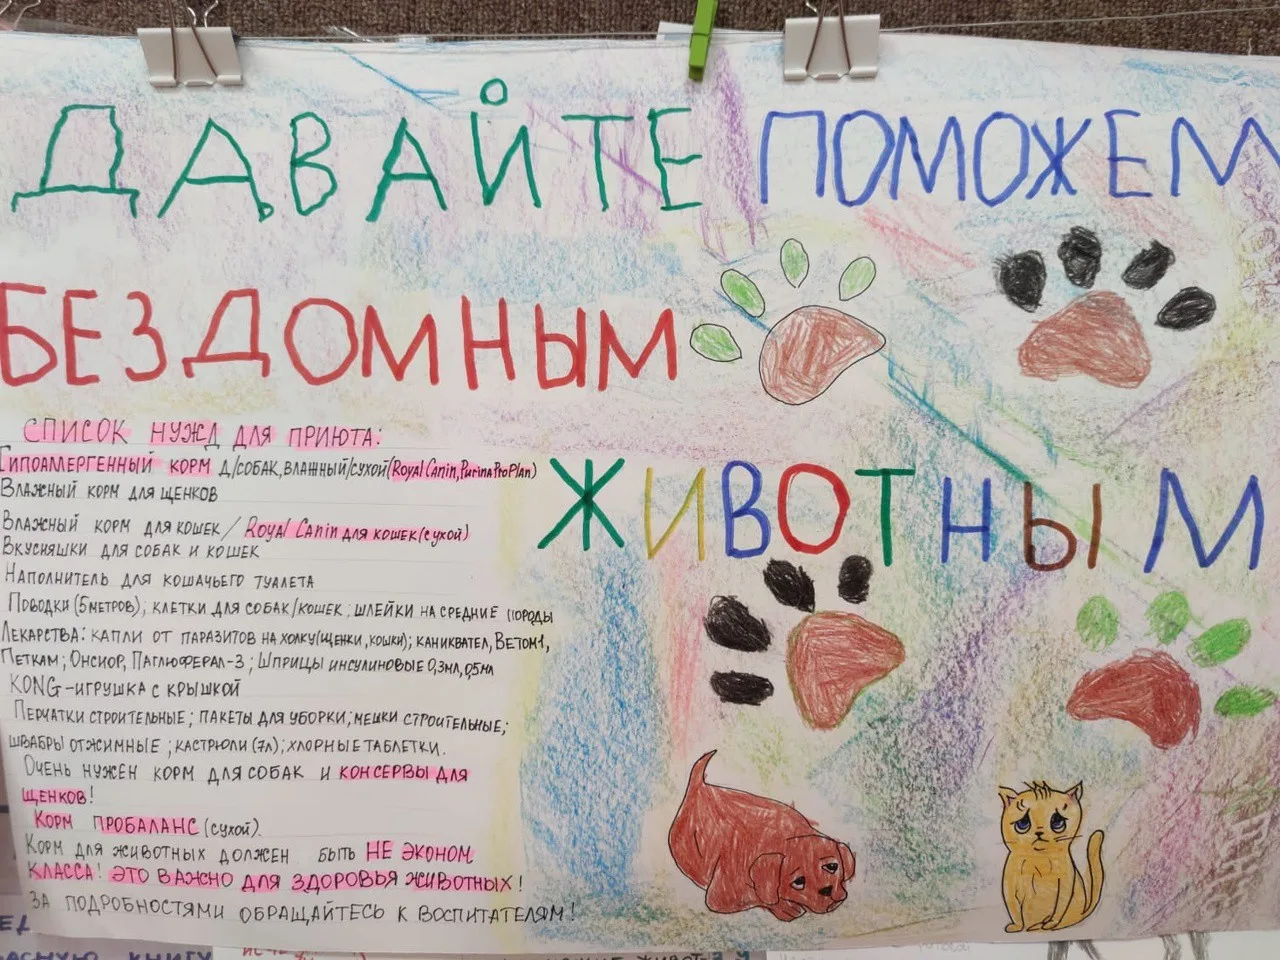 ДАВАЙТЕ ПОМОЖЕМ
БЕЗДОМНЫМ
ЖИВОТНЫМ
СПИСОК НУЖД ДЛЯ ПРИЮТА:
ГИПОАЛЛЕРГЕННЫЙ КОРМ Д/СОБАК, ВЛАЖНЫЙ/СУХОЙ (Royal Canin, Purina Pro Plan)
ВЛАЖНЫЙ КОРМ ДЛЯ ЩЕНКОВ
ВЛАЖНЫЙ КОРМ ДЛЯ КОШЕК / Royal Canin ДЛЯ КОШЕК (СУХОЙ)
ВКУСНЯШКИ ДЛЯ СОБАК И КОШЕК
НАПОЛНИТЕЛЬ ДЛЯ КОШАЧЬЕГО ТУАЛЕТА
ПОВОДКИ (5МЕТРОВ); КЛЕТКИ ДЛЯ СОБАК/КОШЕК; ШЛЕЙКИ НА СРЕДНИЕ ПОРОДЫ
ЛЕКАРСТВА: КАПЛИ ОТ ПАРАЗИТОВ НА ХОЛКУ (ЩЕНКИ, КОШКИ); КАНИКВАТЕЛ, ВЕТОМ1,
ПЕТКАМ; ОНСИОР, ПАГЛЮФЕРАЛ-3; ШПРИЦЫ ИНСУЛИНОВЫЕ 0,3МЛ, 0,5МЛ
KONG-ИГРУШКА С КРЫШКОЙ
ПЕРЧАТКИ СТРОИТЕЛЬНЫЕ; ПАКЕТЫ ДЛЯ УБОРКИ; МЕШКИ СТРОИТЕЛЬНЫЕ;
ШВАБРЫ ОТЖИМНЫЕ; КАСТРЮЛИ (7Л); ХЛОРНЫЕ ТАБЛЕТКИ.
ОЧЕНЬ НУЖЕН КОРМ ДЛЯ СОБАК И КОНСЕРВЫ ДЛЯ
ЩЕНКОВ!
КОРМ ПРОБАЛАНС (СУХОЙ).
КОРМ ДЛЯ ЖИВОТНЫХ ДОЛЖЕН БЫТЬ НЕ ЭКОНОМ
КЛАССА! ЭТО ВАЖНО ДЛЯ ЗДОРОВЬЯ ЖИВОТНЫХ!
ЗА ПОДРОБНОСТЯМИ ОБРАЩАЙТЕСЬ К ВОСПИТАТЕЛЯМ!
КНИГУ